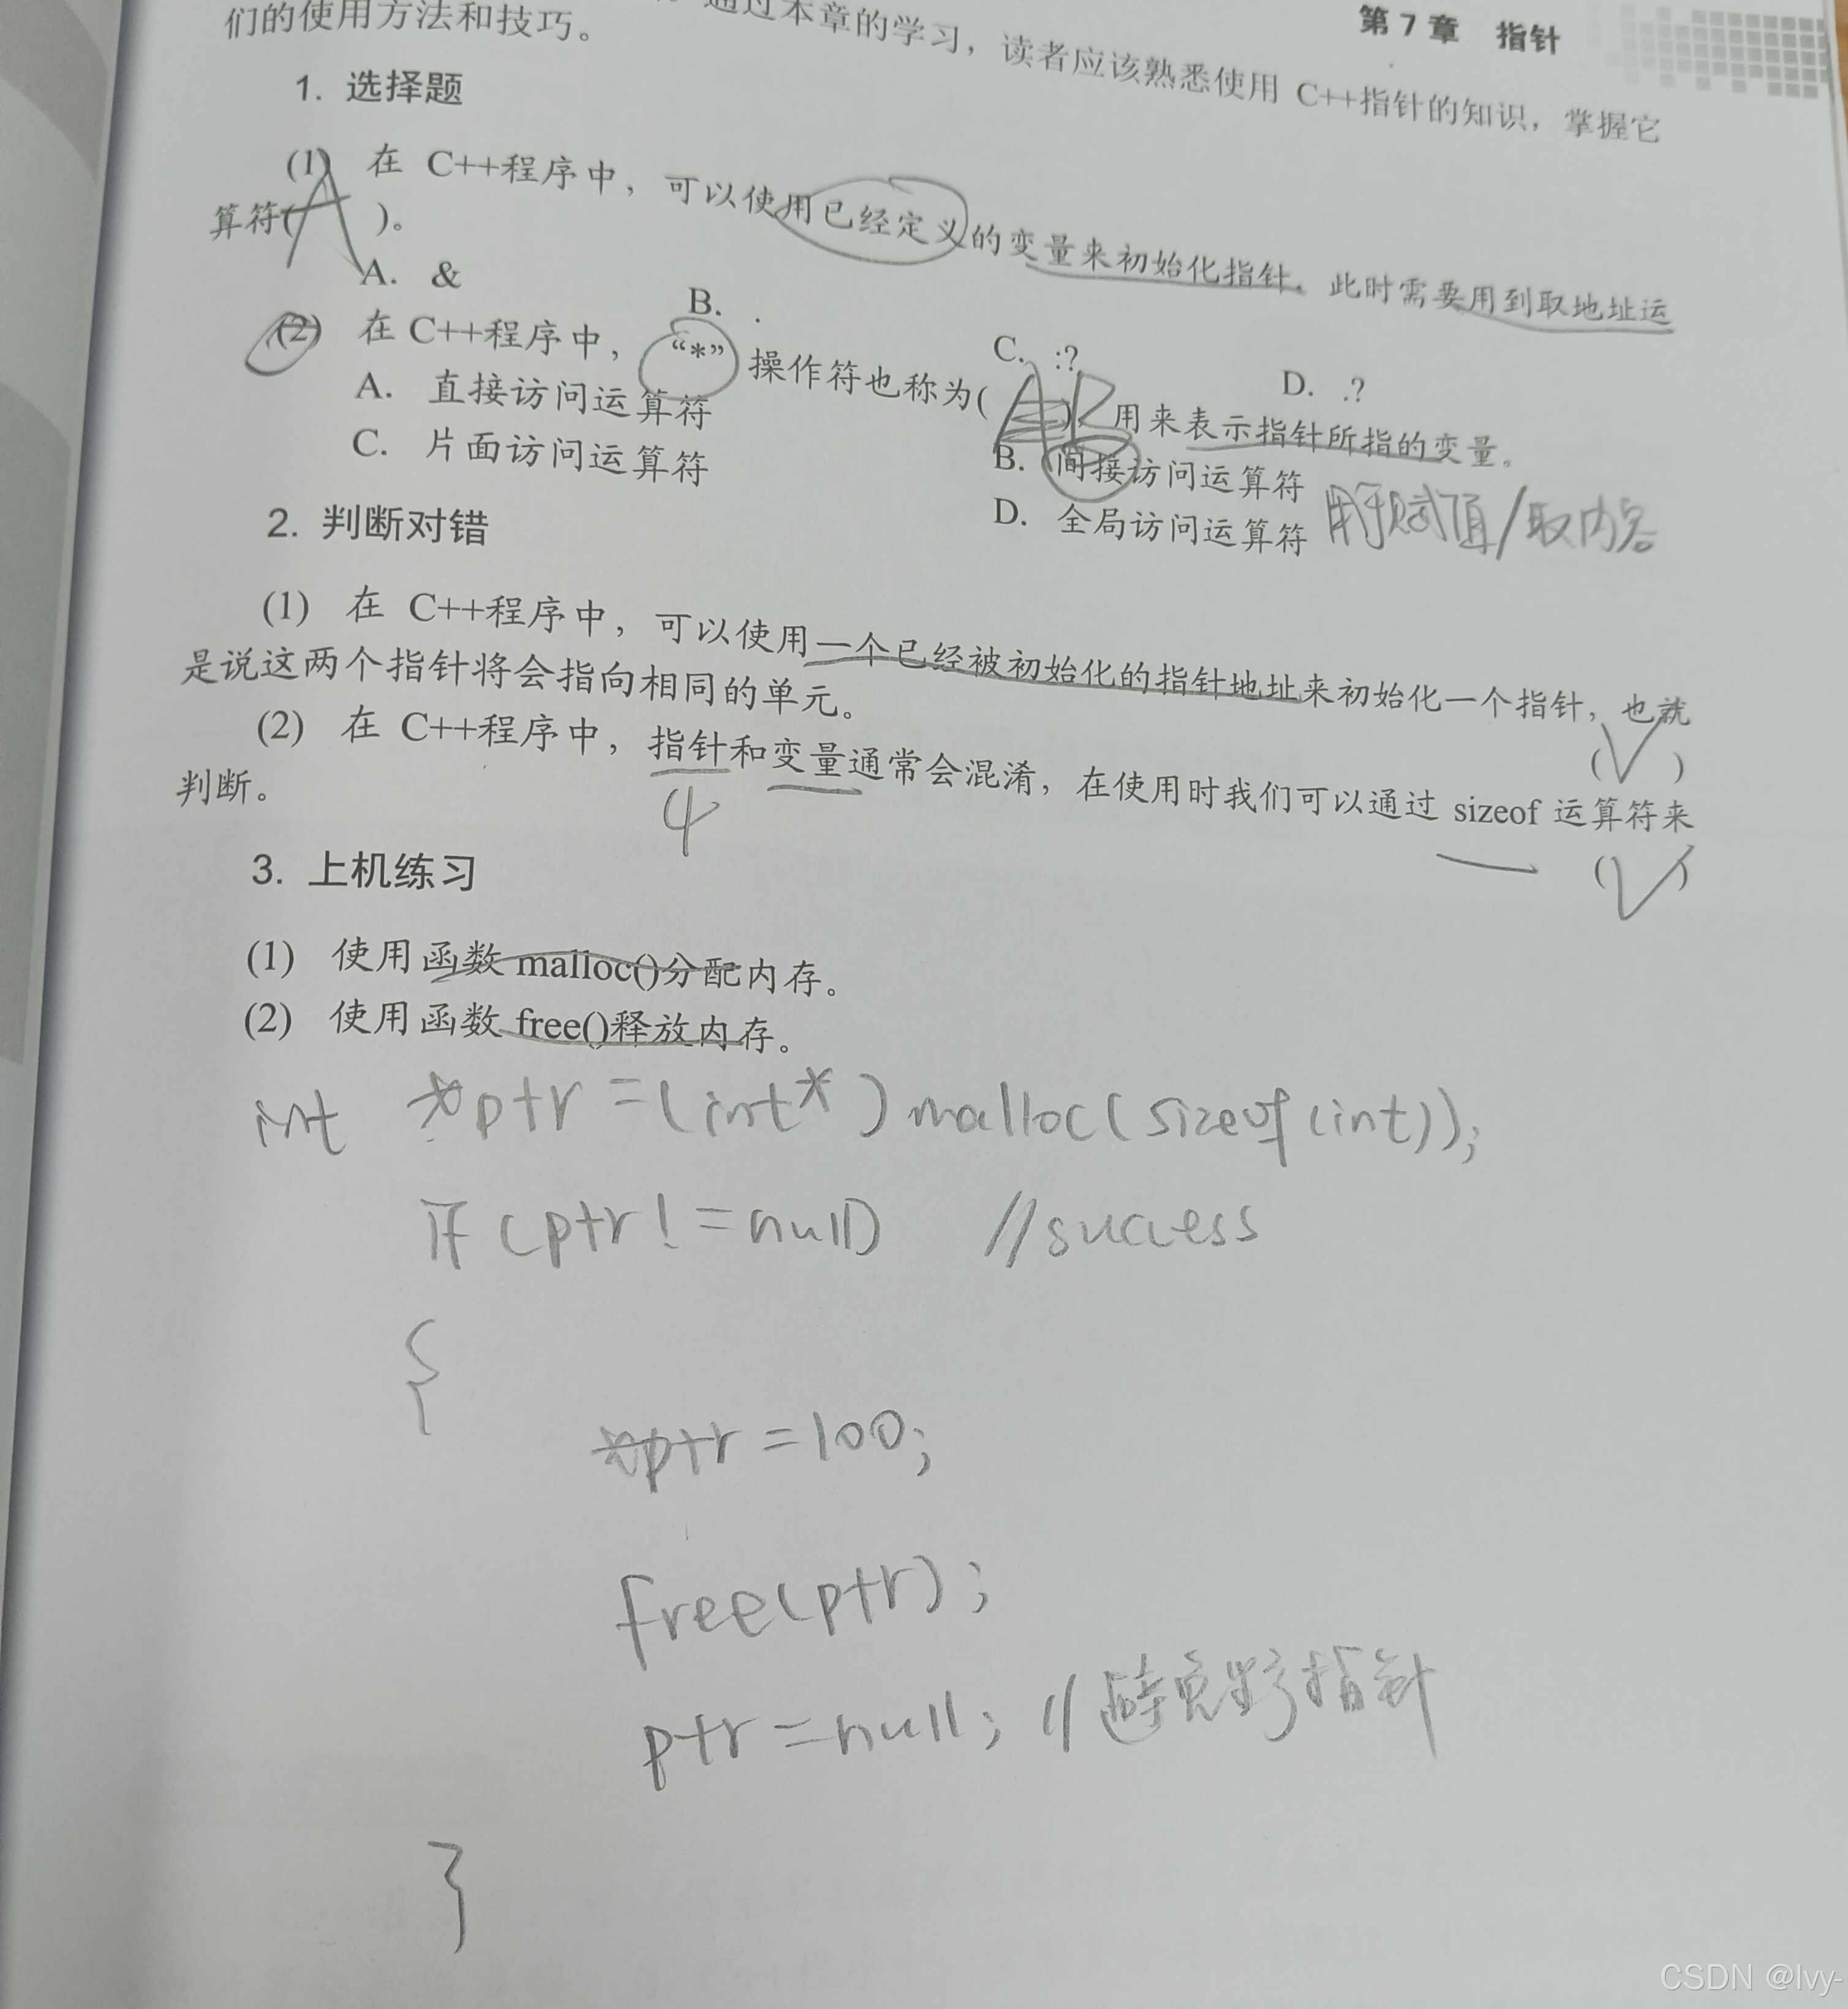 第7章 指针
通过本章的学习，读者应该熟悉使用 C++指针的知识，掌握它
们的使用方法和技巧。
1. 选择题
(1) 在 C++程序中，可以使用已经定义的变量来初始化指针。此时需要用到取地址运
算符( A )。
A. & B. . C. :? D. .?
(2) 在 C++程序中，“*”操作符也称为( B ) 用来表示指针所指的变量。
A. 直接访问运算符 B. 间接访问运算符
C. 片面访问运算符 D. 全局访问运算符 用于赋值/取内容
2. 判断对错
(1) 在 C++程序中，可以使用一个已经被初始化的指针地址来初始化一个指针，也就
是说这两个指针将会指向相同的单元。 (√)
(2) 在 C++程序中，指针和变量通常会混淆，在使用时我们可以通过 sizeof 运算符来
判断。 (√)
4
3. 上机练习
(1) 使用函数 malloc()分配内存。
(2) 使用函数 free()释放内存。
int *ptr=(int*)malloc(sizeof(int));
if (ptr!=null) //success
{
*ptr=100;
free(ptr);
ptr=null; //避免野指针
}
CSDN @lvy-